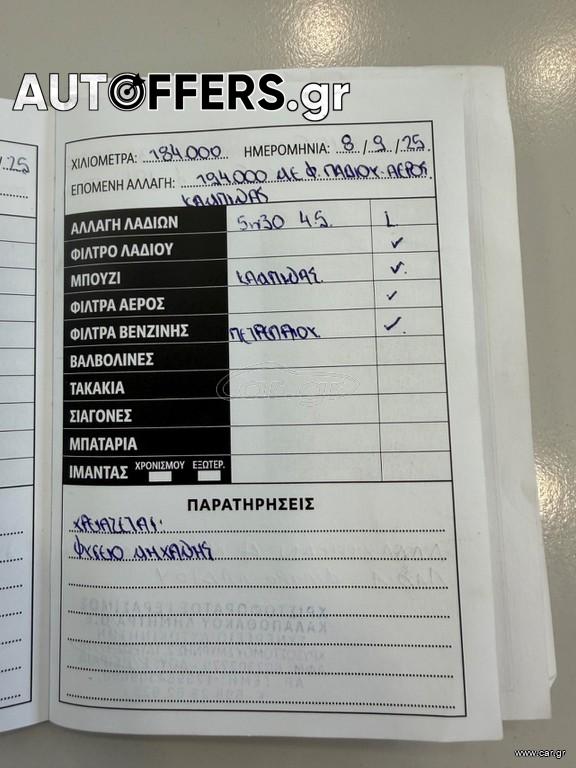 AUTOFFERS.gr
/25
ΧΙΛΙΟΜΕΤΡΑ: 184.000 ΗΜΕΡΟΜΗΝΙΑ: 8/9/25
ΕΠΟΜΕΝΗ ΑΛΛΑΓΗ: 194.000 ΜΕ Φ. ΛΑΔΙΟΥ-ΑΕΡΟΣ
ΚΑΜΠΙΝΑΣ
ΑΛΛΑΓΗ ΛΑΔΙΩΝ 5W30 4.5. L
ΦΙΛΤΡΟ ΛΑΔΙΟΥ ✓
ΜΠΟΥΖΙ ΚΑΜΠΙΝΑΣ. ✓
ΦΙΛΤΡΑ ΑΕΡΟΣ ✓
ΦΙΛΤΡΑ ΒΕΝΖΙΝΗΣ ΠΕΤΡΕΛΑΙΟΥ. ✓
ΒΑΛΒΟΛΙΝΕΣ
ΤΑΚΑΚΙΑ
ΣΙΑΓΟΝΕΣ
ΜΠΑΤΑΡΙΑ
ΙΜΑΝΤΑΣ ΧΡΟΝΙΣΜΟΥ ΕΞΩΤΕΡ.
ΠΑΡΑΤΗΡΗΣΕΙΣ
ΧΡΕΙΑΖΕΤΑΙ:
ΨΥΓΕΙΟ ΜΗΧΑΝΗΣ
car.gr
www.car.gr